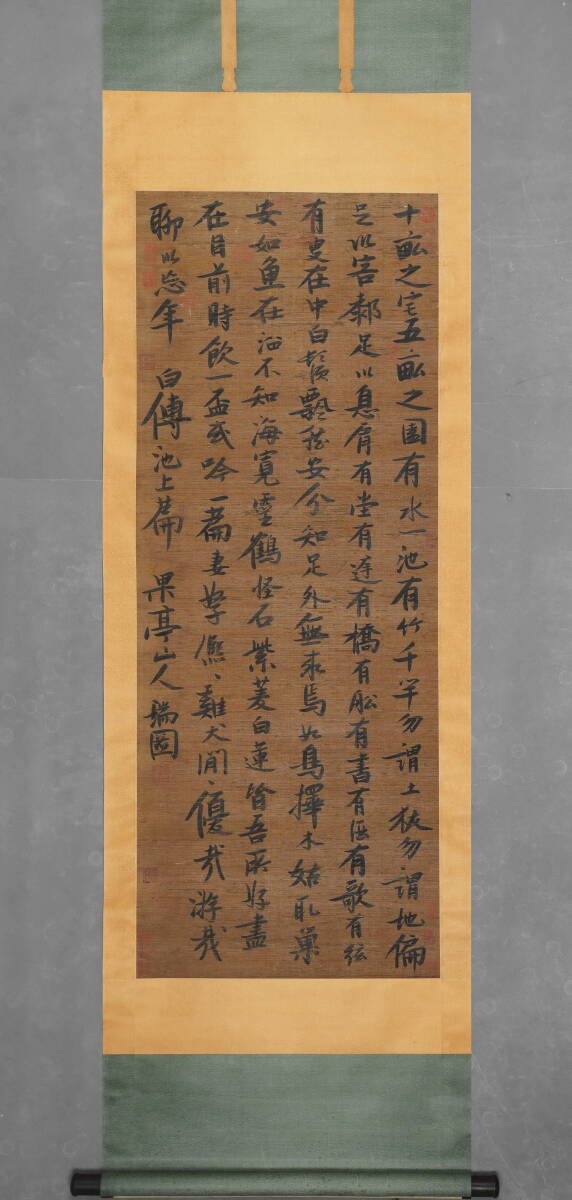 十畝之宅五畝之園有水一池有竹千竿勿謂土狹勿謂地偏
足以容膝足以息肩有堂有庭有橋有船有書有酒有歌有絃
有叟在中白鬚飄然安分知足外無求焉如鳥擇木姑取巢
安如魚在沼不知海寬靈鶴怪石紫菱白蓮皆吾所好盡
在目前時飲一盃或吟一篇妻孥熙〻雞犬閒〻優哉游哉
聊以忘年 白傅池上篇 果亭山人瑞圖